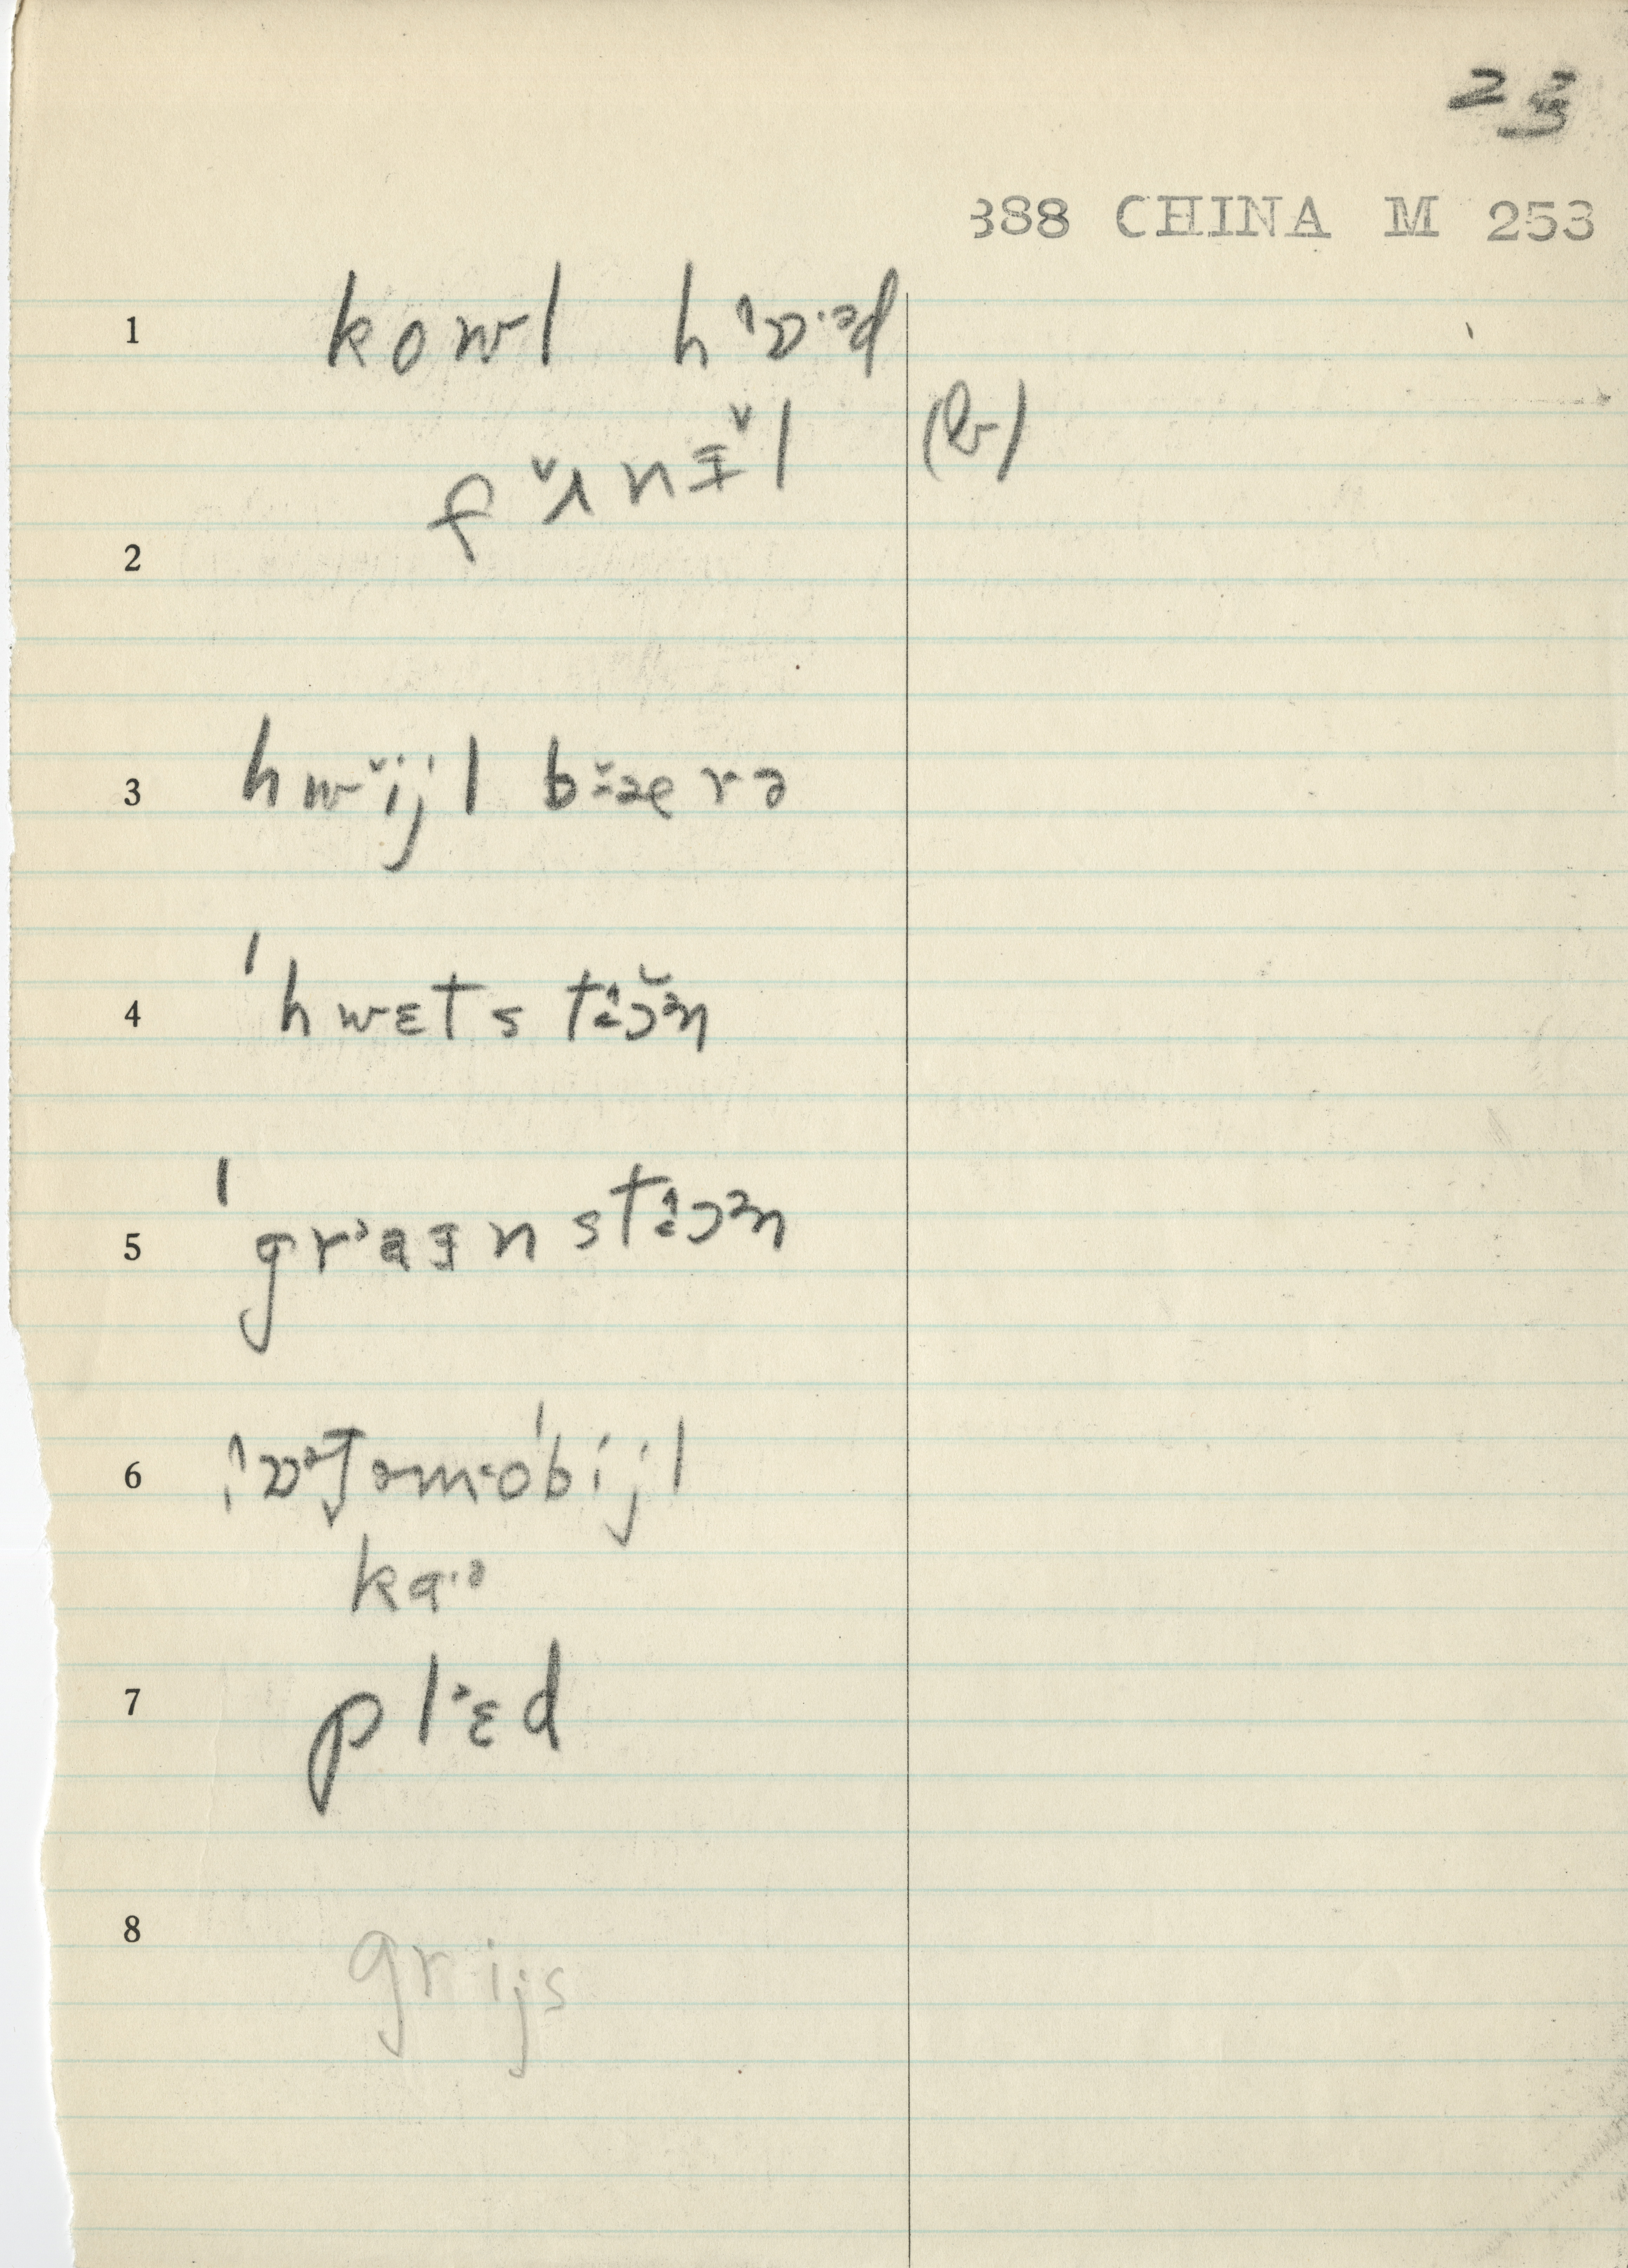 23
388 CHINA M 253
1 kowl hɒ·əd
fʌnɪl (lr)
2
3 hwijl bærə
4 ˈhwɛtstɔən
5 ˈgraɪnstɔən
6 ɒᵊtəmoˈbijl
kɑ·ə
7 plɛd
8 grijs